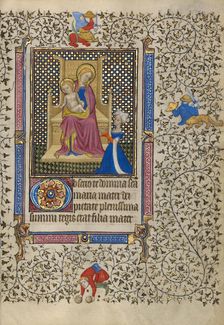 Obsecro te domina sca
maria mater dei
pietate plenissima
summi regis filia mater